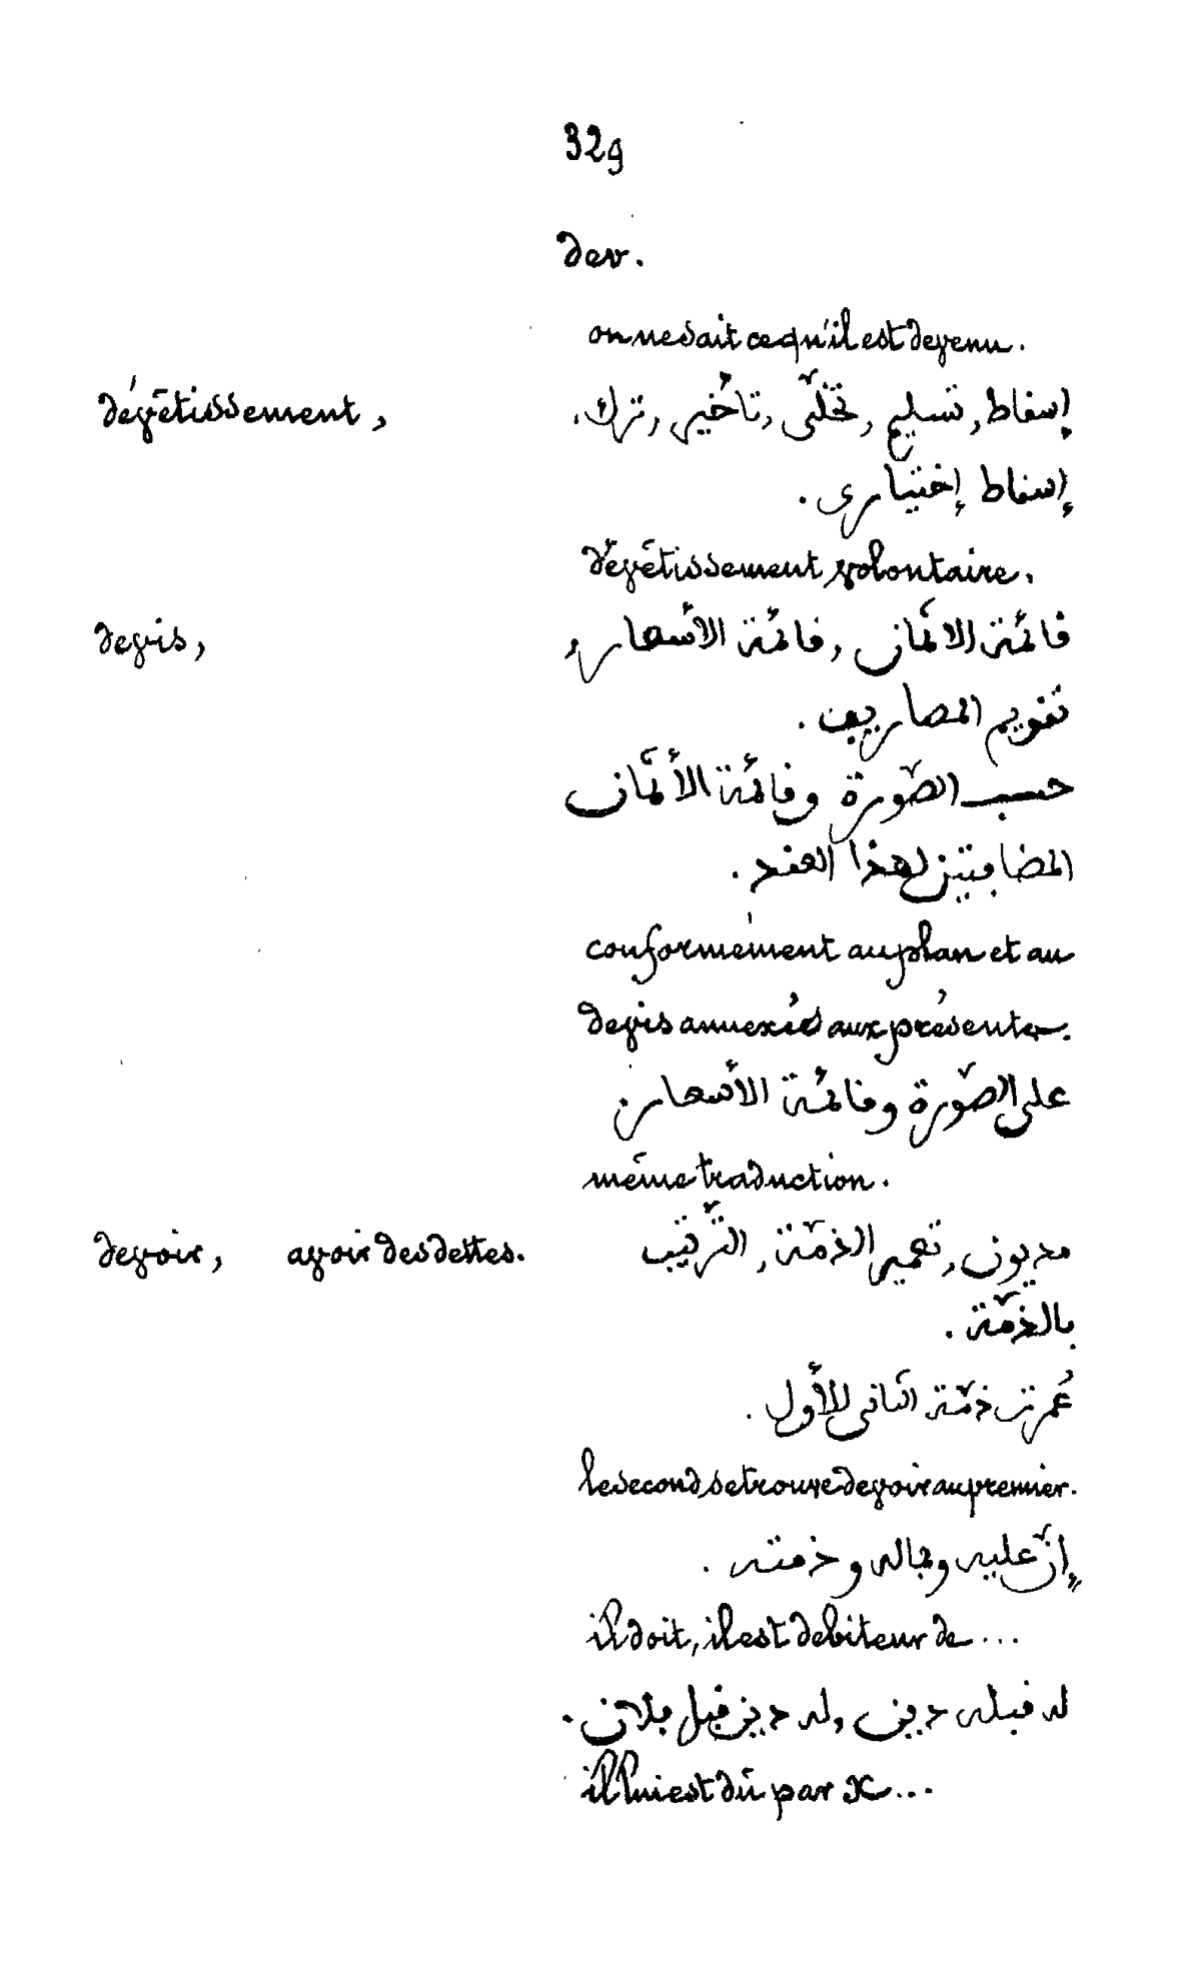 329
dev.
on ne sait ce qu'il est devenu.
dévêtissement, إسقاط, تسليم, تخلّى, تأخير, ترك,
إسقاط إختيارى.
dévêtissement volontaire.
devis, قائمة الاثمان, قائمة الأسعار,
تقويم المصاريف.
حسب الصّورة وقائمة الأثمان
المضافتين لهذا العقد.
conformément au plan et au
devis annexés aux présentes.
على الصّورة وقائمة الأسعار.
même traduction.
devoir, avoir des dettes. مديون, تعمير الذمّة, التّرتيب
بالذمّة.
عُمرت ذمّة الثانى للأول.
le second se trouve devoir au premier.
إنّ عليه وبماله وذمته.
il doit, il est debiteur de...
له قبله دين, له دين قبل فلان.
il lui est dû par X...